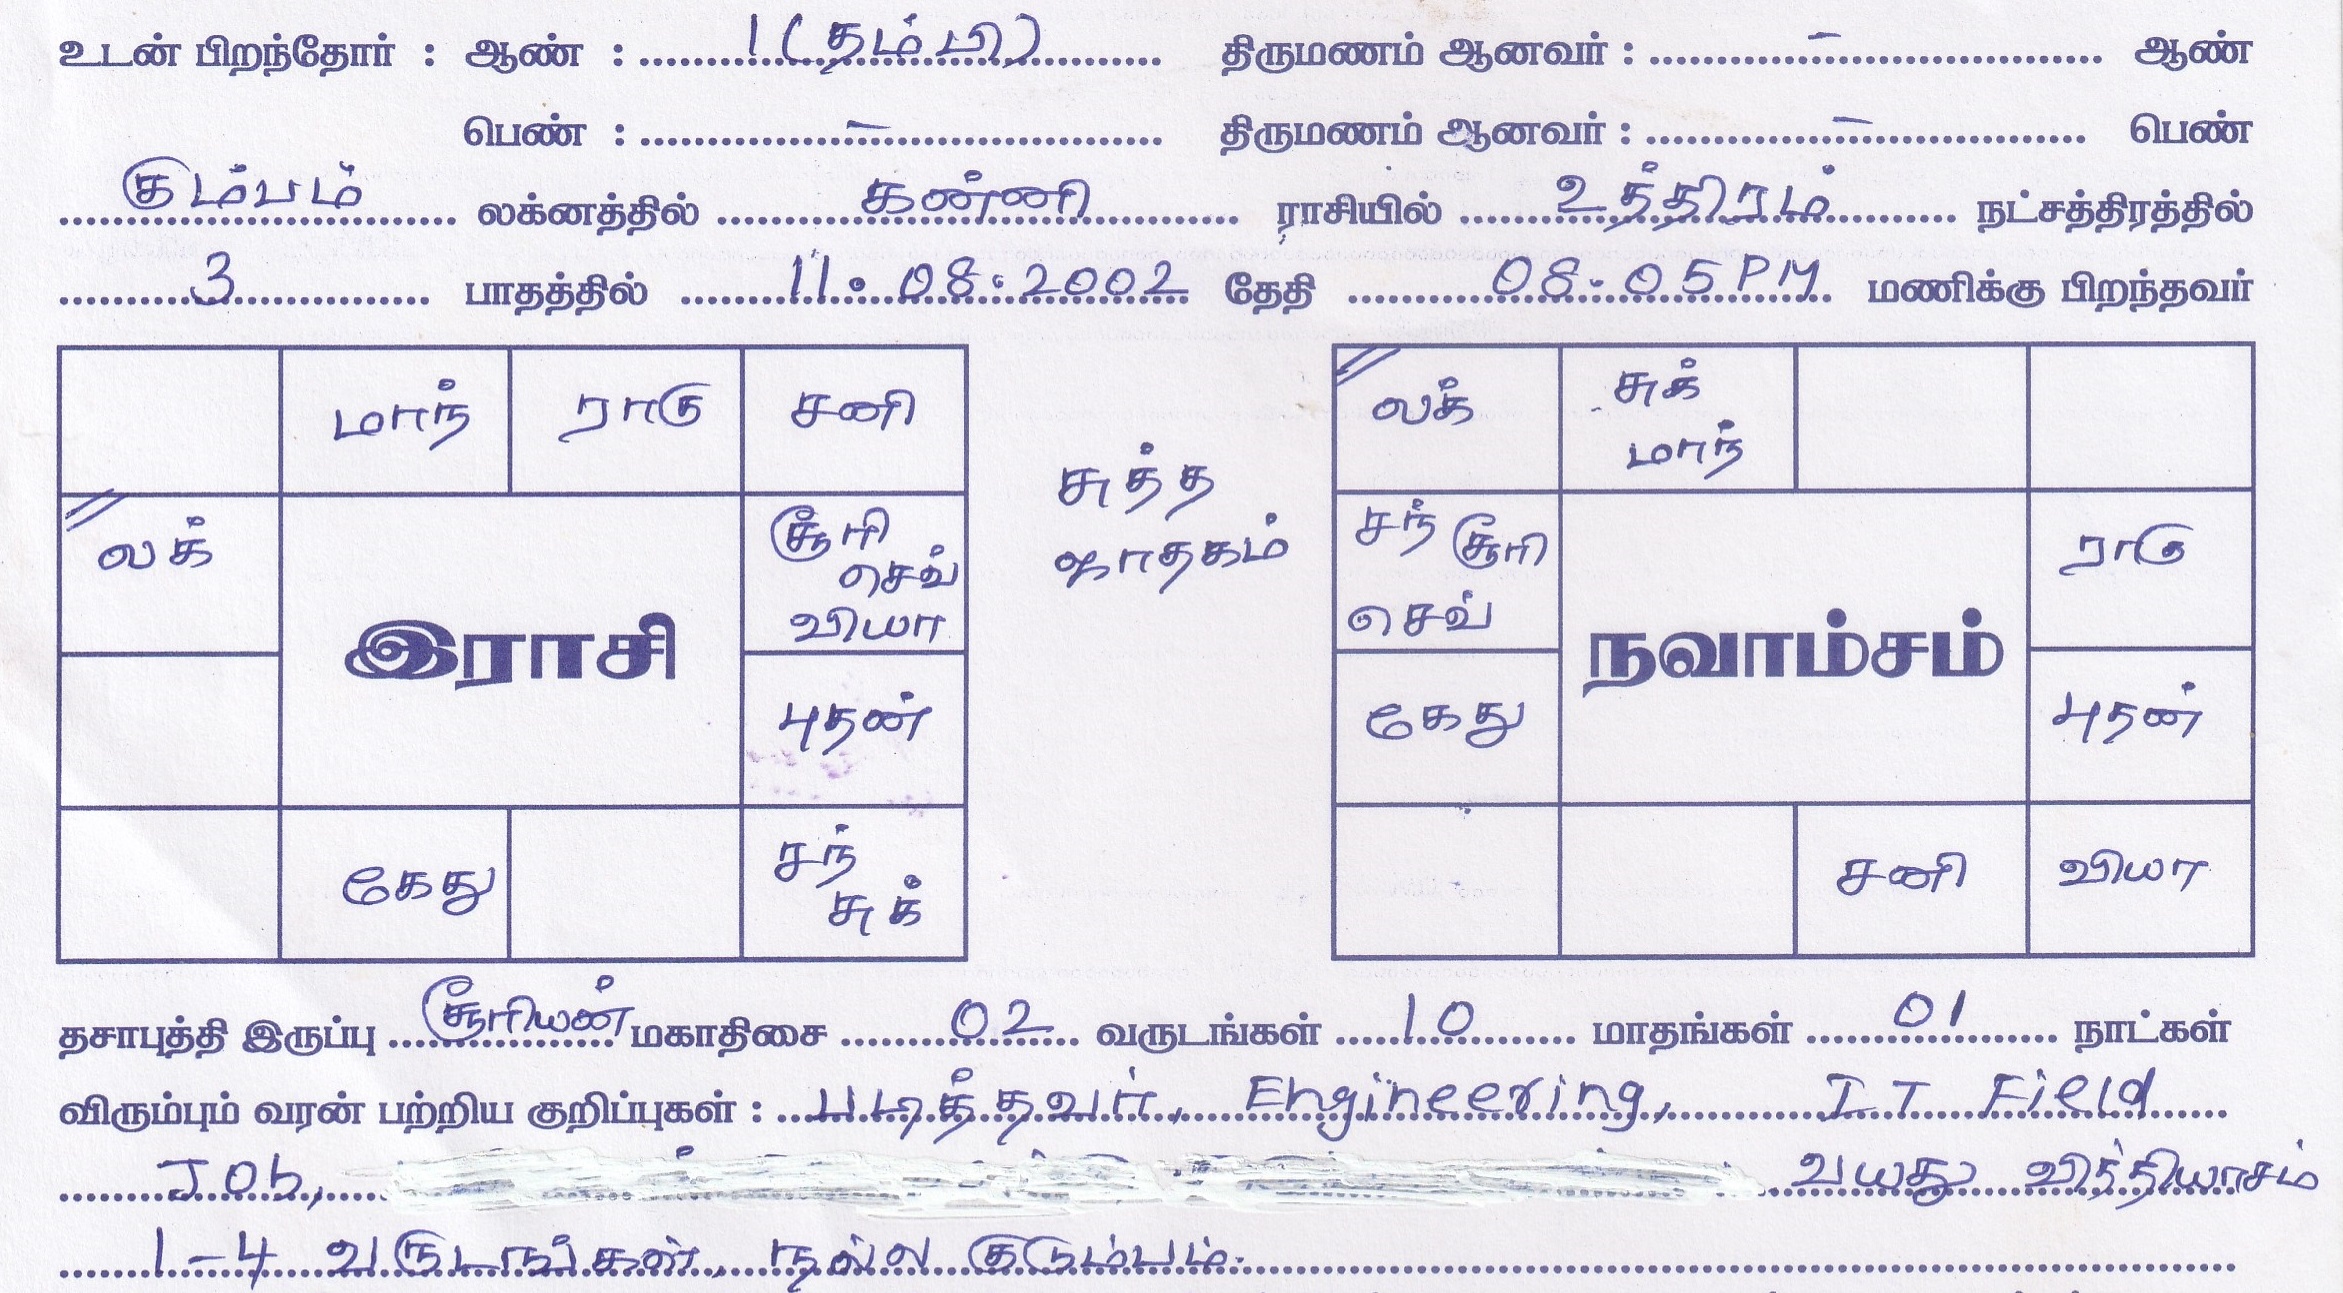 உடன் பிறந்தோர் : ஆண் : 1 (தம்பி) திருமணம் ஆனவர் : – ஆண்
பெண் : – திருமணம் ஆனவர் : – பெண்
கும்பம் லக்னத்தில் கன்னி ராசியில் உத்திரம் நட்சத்திரத்தில்
3 பாதத்தில் 11.08.2002 தேதி 08.05 PM மணிக்கு பிறந்தவர்
மாந் ராகு சனி
லக்
சூரி
செவ்
வியா
இராசி
புதன்
கேது
சந்
சுக்
சுத்த
ஜாதகம்
லக்
சுக்
மாந்
சந் சூரி
செவ்
ராகு
நவாம்சம்
கேது
புதன்
சனி வியா
தசாபுத்தி இருப்பு சூரியன் மகாதிசை 02 வருடங்கள் 10 மாதங்கள் 01 நாட்கள்
விரும்பும் வரன் பற்றிய குறிப்புகள் : படித்தவர், Engineering, IT Field
Job, வயது வித்தியாசம்
1-4 வருடங்கள், நல்ல குடும்பம்.